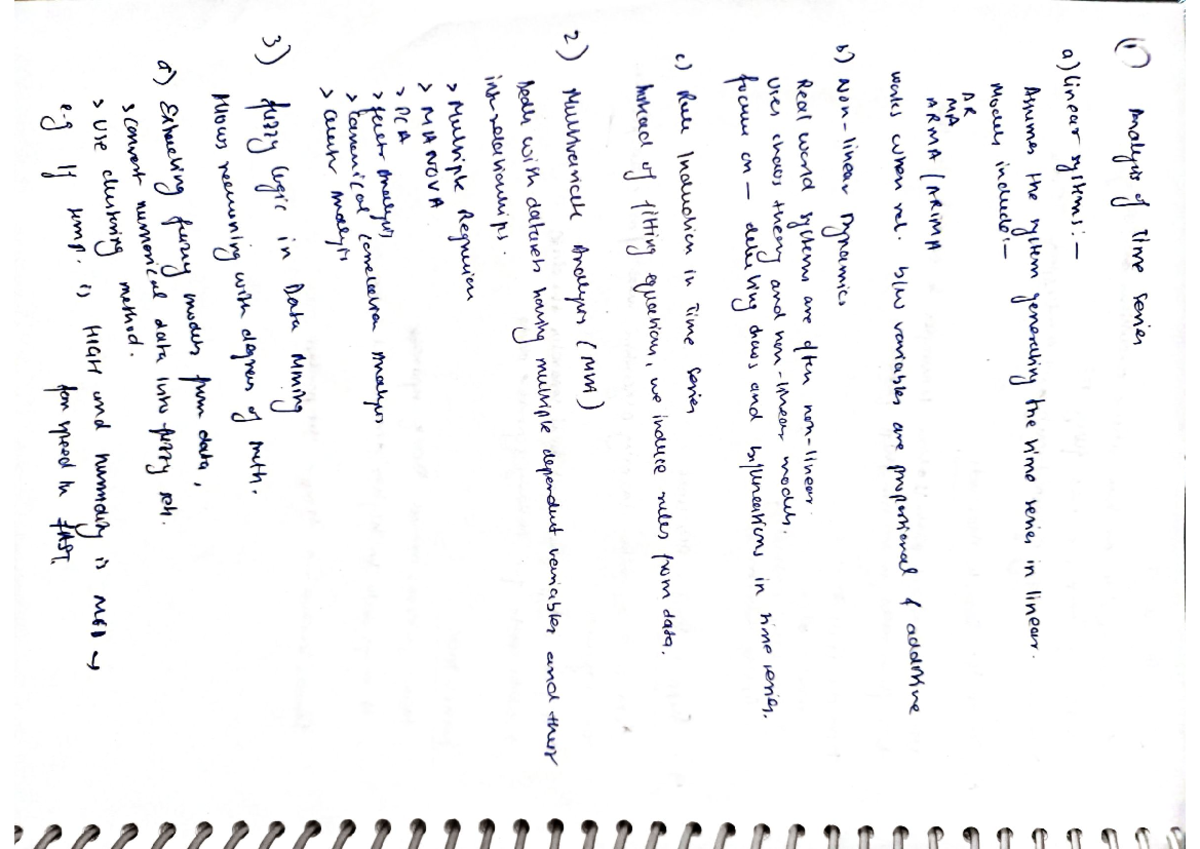 1) Analysis of Time Series
a) Linear systems:-
Assumes the system generating the time series in linear.
Models include:-
AR
MA
ARMA / ARIMA
works when rel. b/w variables are proportional & additive
b) Non-linear Dynamics
Real world systems are often non-linear.
Uses chaos theory and non-linear models.
focus on - detecting chaos and bifurcations in time series.
c) Rule Induction in Time Series
Instead of fitting equations, we induce rules from data.
2) Multivariate Analysis (MVA)
Deals with datasets having multiple dependent variables and their
inter-relationships.
> Multiple Regression
> MANOVA
> PCA
> factor Analysis
> Canonical Correlation Analysis
> Cluster Analysis
3) Fuzzy Logic in Data Mining
Allows reasoning with degrees of truth.
a) Extracting fuzzy models from data,
> convert numerical data into fuzzy sets.
> use clustering method.
e.g If temp. is HIGH and humidity is MED →
fan speed is FAST.